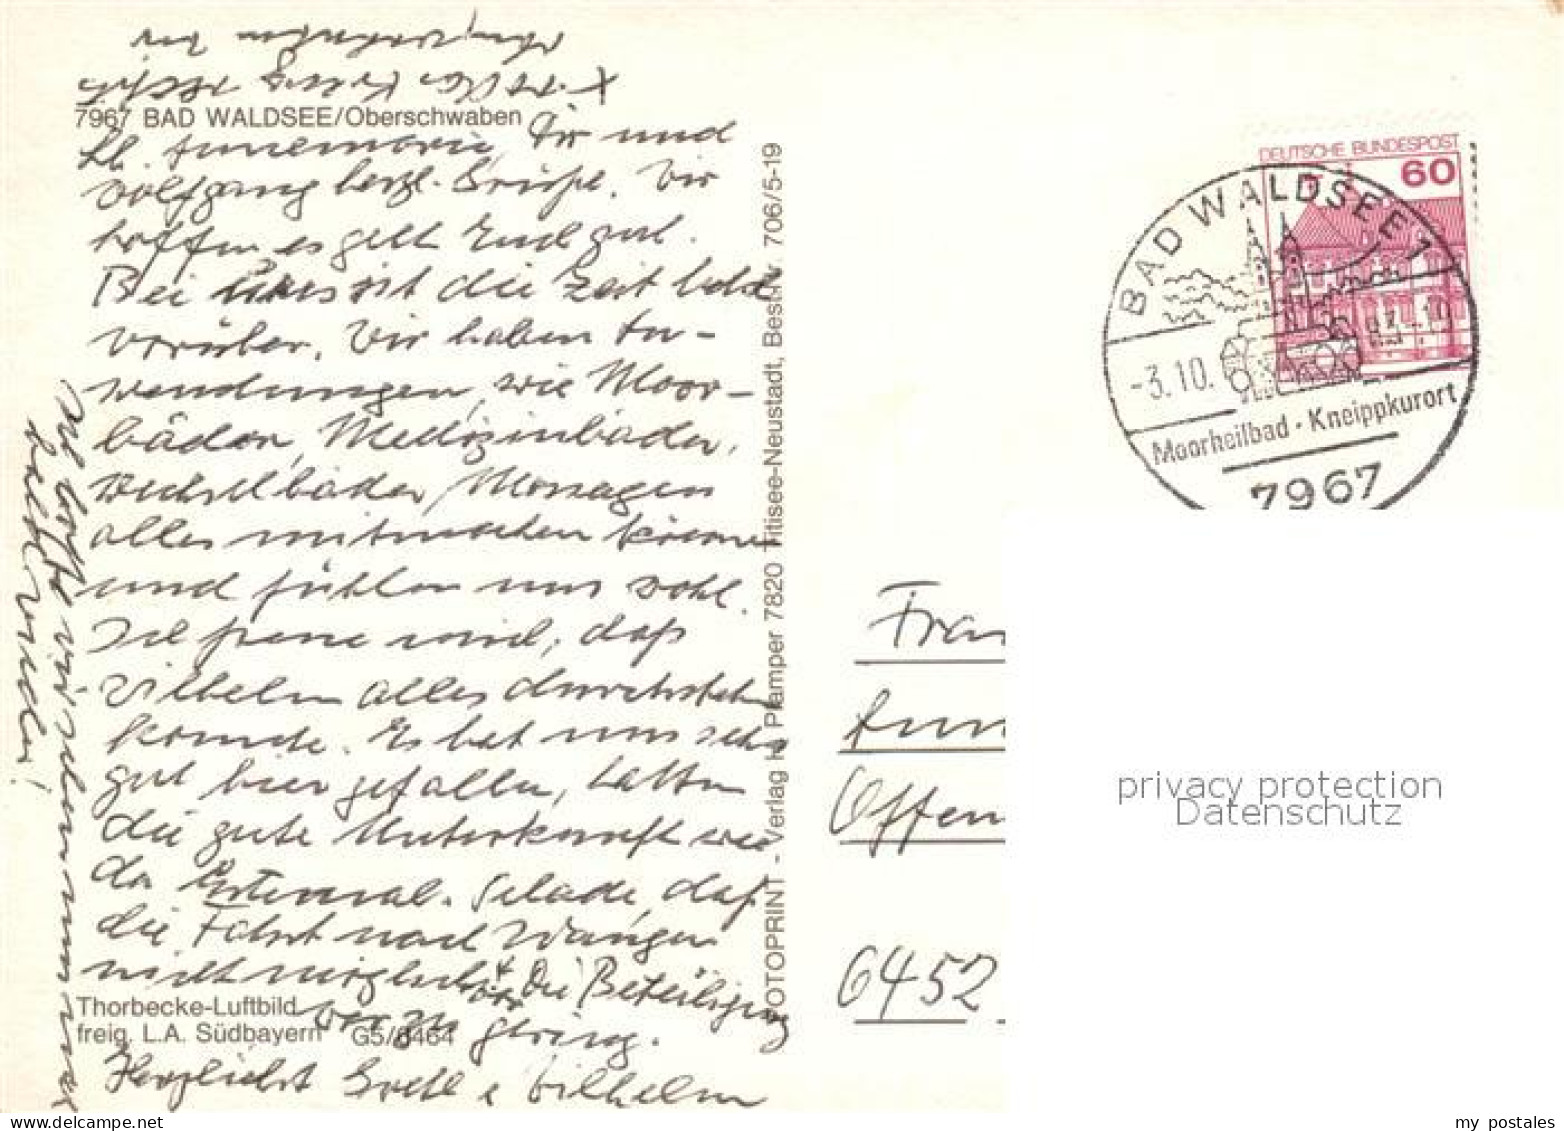 7967 BAD WALDSEE/Oberschwaben
Lb. Annemarie, Dir und
Wolfgang herzl. Grüße. Wir
hoffen es geht Euch gut.
Bei uns ist die Zeit bald
vorüber. Wir haben An-
wendungen, wie Moor-
bäder, Medizinbäder,
Wechselbäder, Massagen
alles mitmachen können
und fühlen uns wohl.
Ich freue mich, daß
Wilhelm alles durchstehen
konnte. Es hat uns sehr
gut hier gefallen, hatten
die gute Unterkunft wie
das Erstemal. Schade, daß
die Fahrt nach Wangen
nicht möglich war. Die Beteiligung
war zu gering.
Herzlichst Gretl u Wilhelm
Ich hoffe wir schwimmen
bald wieder!
Thorbecke-Luftbild
freig. L.A. Südbayern G5/8464
FOTOPRINT - Verlag H. Pfamper 7820 Titisee-Neustadt, Best.-Nr. 706/5-19
DEUTSCHE BUNDESPOST
60
BAD WALDSEE 1
-3.10.
Moorheilbad · Kneippkurort
7967
Frau
Offen
6452
privacy protection
Datenschutz
my postales